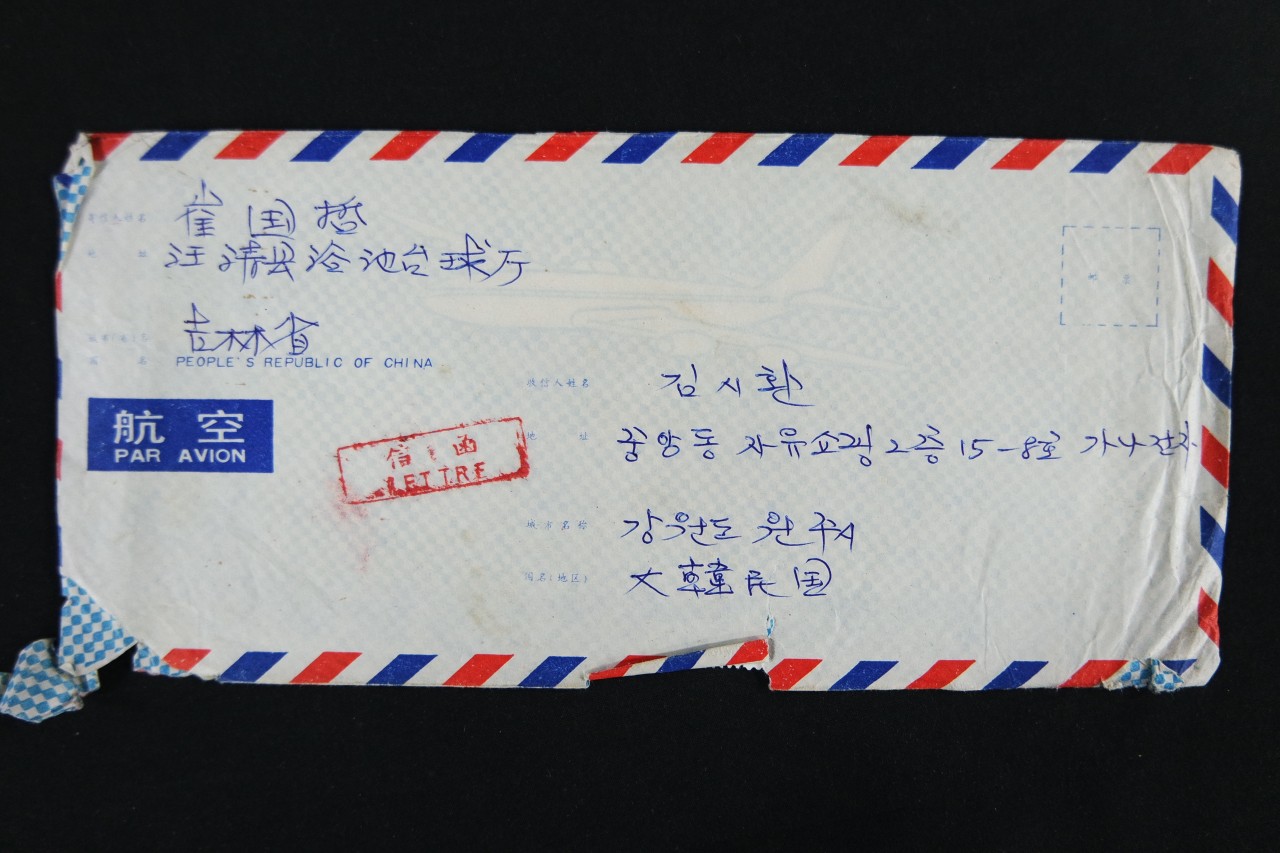 寄信人姓名 崔国哲
地址 汪清县浴池台球厅
吉林省
国名 PEOPLE'S REPUBLIC OF CHINA
邮票
航空
PAR AVION
信函
LETTRE
收信人姓名 김시환
地址 중앙동 자유쇼핑 2층 15-8호 가나전자
城市名称 강원도 원주시
国名(地区) 大韓民国